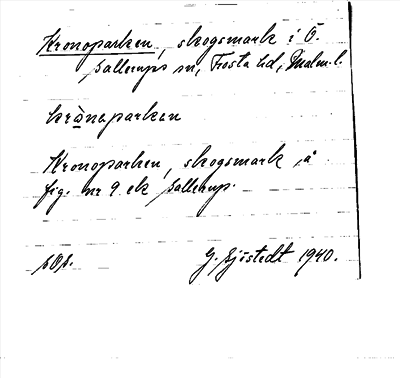 Kronoparken, skogsmark i Ö.
Sallerups sn, Frosta hd, Malm. l.
krònaparken
Kronoparken, skogsmark, å
fig. nr 9 ek Sallerup.
G. Sjöstedt 1940.